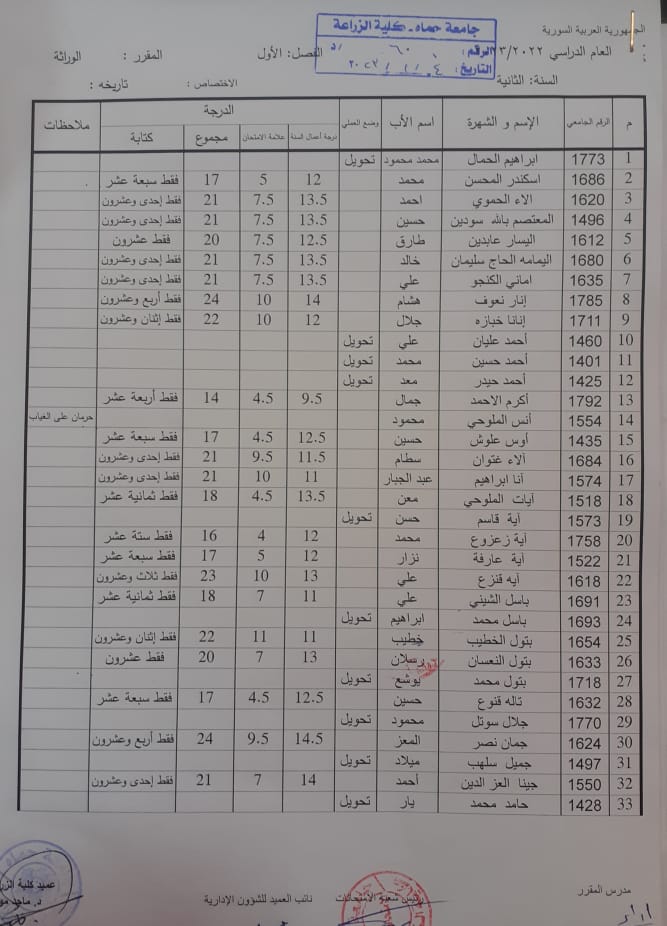 الجمهورية العربية السورية
جامعة حماه - كلية الزراعة
العام الدراسي ٢٠٢٢/٢٣ الرقم: ٦٠ الفصل: الأول المقرر: الوراثة
السنة: الثانية التاريخ: الاختصاص: تاريخه:
م الرقم الجامعي الإسم و الشهرة اسم الأب وضع العملي الدرجة ملاحظات
درجة أعمال السنة علامة الامتحان مجموع كتابة
1 1773 ابراهيم الحمال محمد محمود تحويل
2 1686 اسكندر المحسن محمد 12 5 17 فقط سبعة عشر
3 1620 الاء الحموي احمد 13.5 7.5 21 فقط إحدى وعشرون
4 1496 المعتصم بالله سودين حسين 13.5 7.5 21 فقط إحدى وعشرون
5 1612 اليسار عابدين طارق 12.5 7.5 20 فقط عشرون
6 1680 اليمامه الحاج سليمان خالد 13.5 7.5 21 فقط إحدى وعشرون
7 1635 اماني الكنجو علي 13.5 7.5 21 فقط إحدى وعشرون
8 1785 إنار نعوف هشام 14 10 24 فقط أربع وعشرون
9 1711 إنانا خبازه جلال 12 10 22 فقط إثنان وعشرون
10 1460 أحمد عليان علي تحويل
11 1401 أحمد حسين محمد تحويل
12 1425 أحمد حيدر معد تحويل
13 1792 أكرم الاحمد جمال 9.5 4.5 14 فقط أربعة عشر
14 1554 أنس الملوحي محمود حرمان على الغياب
15 1435 أوس علوش حسين 12.5 4.5 17 فقط سبعة عشر
16 1684 آلاء غتوان سطام 11.5 9.5 21 فقط إحدى وعشرون
17 1574 آنا ابراهيم عبد الجبار 11 10 21 فقط إحدى وعشرون
18 1518 آيات الملوحي معن 13.5 4.5 18 فقط ثمانية عشر
19 1573 آية قاسم حسن تحويل
20 1758 آية زعزوع محمد 12 4 16 فقط ستة عشر
21 1522 آية عارفة نزار 12 5 17 فقط سبعة عشر
22 1618 آيه قنزع علي 13 10 23 فقط ثلاث وعشرون
23 1691 باسل الشيني علي 11 7 18 فقط ثمانية عشر
24 1693 باسل محمد ابراهيم تحويل
25 1654 بتول الخطيب خطيب 11 11 22 فقط إثنان وعشرون
26 1633 بتول النعسان رسلان 13 7 20 فقط عشرون
27 1718 بتول محمد يوشع تحويل
28 1632 تاله قنوع حسين 12.5 4.5 17 فقط سبعة عشر
29 1770 جلال سوتل محمود تحويل
30 1624 جمان نصر المعز 14.5 9.5 24 فقط أربع وعشرون
31 1497 جميل سلهب ميلاد تحويل
32 1550 جينا العز الدين أحمد 14 7 21 فقط إحدى وعشرون
33 1428 حامد محمد يار تحويل
مدرس المقرر رئيس شعبة الامتحانات نائب العميد للشؤون الإدارية عميد كلية
د. ماجد